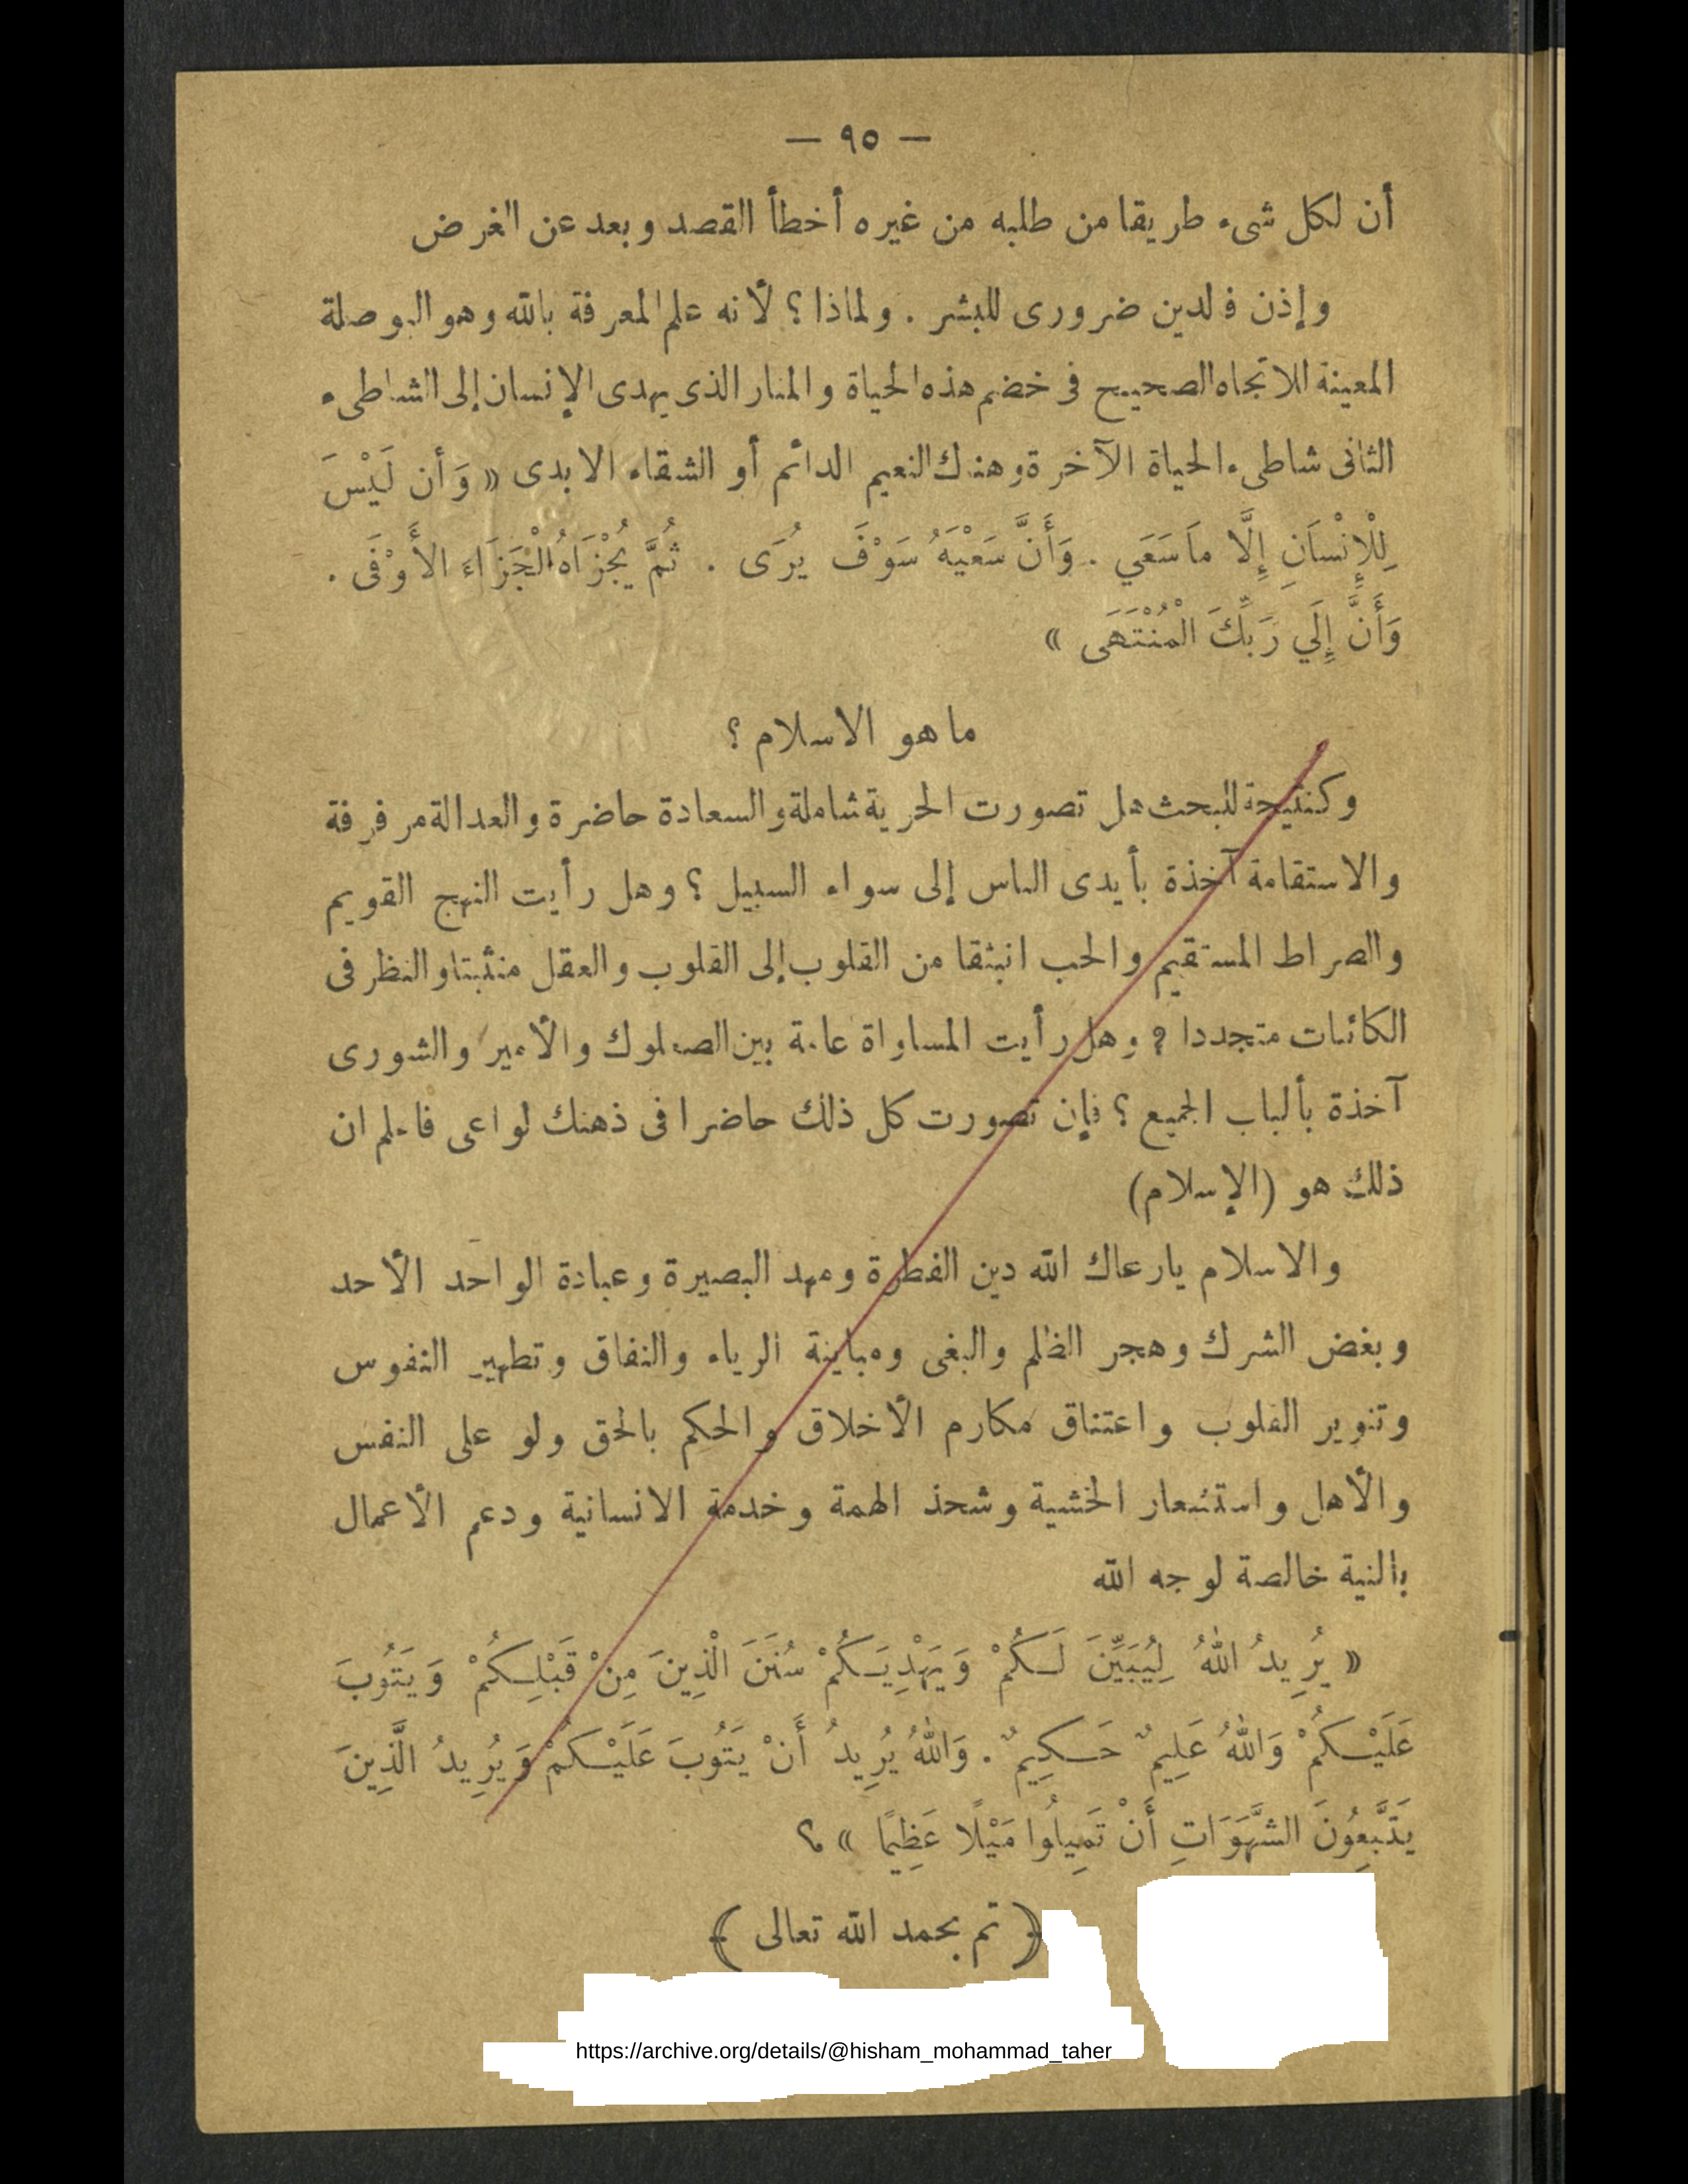 — ٩٥ —
أن لكل شىء طريقا من طلبه من غيره أخطأ القصد وبعد عن الغرض
وإذن فالدين ضرورى للبشر . ولماذا ؟ لأنه علم المعرفة بالله وهو البوصلة
المعينة للاتجاه الصحيح فى خضم هذه الحياة والمنار الذى يهدى الإنسان إلى الشاطىء
الثانى شاطىء الحياة الآخرة وهناك النعيم الدائم أو الشقاء الابدى « وَأن لَيْسَ
لِلْإِنْسَانِ إِلَّا مَا سَعَي . وَأَنَّ سَعْيَهُ سَوْفَ يُرَى . ثُمَّ يُجْزَاهُ الْجَزَاءَ الأَوْفَى .
وَأَنَّ إِلَي رَبِّكَ الْمُنْتَهَى »
ما هو الاسلام ؟
وكنتيجة للبحث هل تصورت الحرية شاملة والسعادة حاضرة والعدالة مرفرفة
والاستقامة آخذة بأيدى الناس إلى سواء السبيل ؟ وهل رأيت النهج القويم
والصراط المستقيم والحب انبثقا من القلوب إلى القلوب والعقل منثبتا والنظر فى
الكائنات متجددا ؟ وهل رأيت المساواة عامة بين الصعلوك والأمير والشورى
آخذة بألباب الجميع ؟ فإن تصورت كل ذلك حاضرا فى ذهنك لواعى فاعلم ان
ذلك هو (الإسلام)
والاسلام يارعاك الله دين الفطرة ومهد البصيرة وعبادة الواحد الأحد
وبغض الشرك وهجر الظلم والبغى ومباينة الرياء والنفاق وتطهير النفوس
وتنوير القلوب واعتناق مكارم الأخلاق والحكم بالحق ولو على النفس
والأهل واستشعار الخشية وشحذ الهمة وخدمة الانسانية ودعم الأعمال
بالنية خالصة لوجه الله
« يُرِيدُ اللهُ لِيُبَيِّنَ لَكُمْ وَيَهْدِيَكُمْ سُنَنَ الْذِينَ مِنْ قَبْلِكُمْ وَيَتُوبَ
عَلَيْكُمْ وَاللهُ عَلِيمٌ حَكِيمٌ . وَاللهُ يُرِيدُ أَنْ يَتُوبَ عَلَيْكُمْ وَيُرِيدُ الَّذِينَ
يَتَّبِعُونَ الشَّهَوَاتِ أَنْ تَمِيلُوا مَيْلًا عَظِيمًا » ؟
﴿ تم بحمد الله تعالى ﴾
https://archive.org/details/@hisham_mohammad_taher